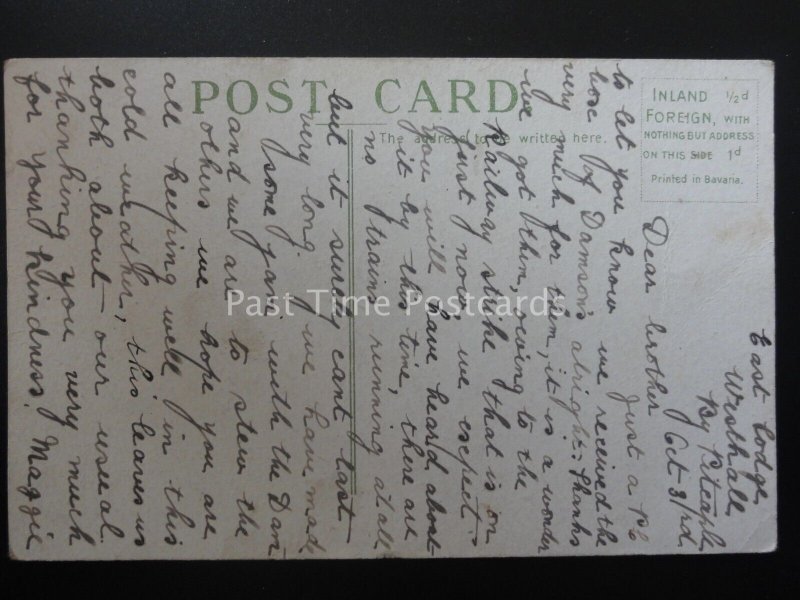 POST CARD
The address to be written here.
INLAND ½d
FOREIGN, WITH
NOTHING BUT ADDRESS
ON THIS SIDE 1d
Printed in Bavaria.
East Lodge,
Westhall
By
Oct 3/rd.
Dear brother
Just a P.C
to let you know we received the
box of Damson's alright. Thanks
very much for them, it is a wonder
we got them, owing to the
Railway strike that is on
just now, we expect
you will have heard about
it by this time, there are
no trains running at all
but it surely cant last
very long. we have made
some jam with the Dam-
and we are to stew the
others we hope you are
all keeping well in this
cold weather, this leaves us
both about our usual.
thanking you very much
for your kindness, Maggie
Past Time Postcards